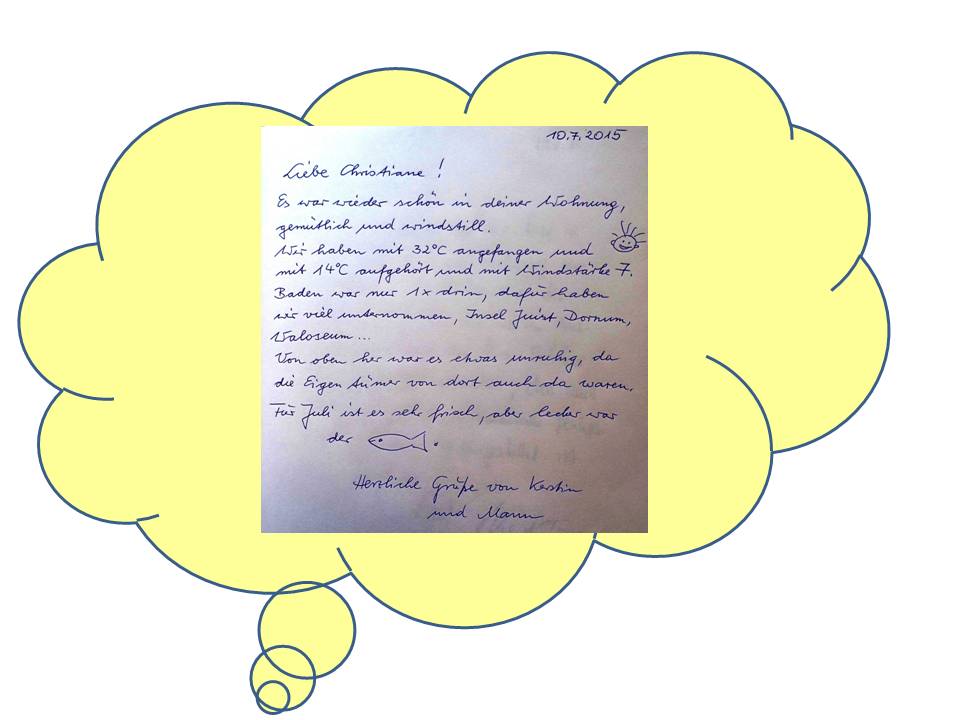 10.7.2015
Liebe Christiane!
Es war wieder schön in deiner Wohnung,
gemütlich und windstill.
Wir haben mit 32°C angefangen und
mit 14°C aufgehört und mit Windstärke 7.
Baden war nur 1x drin, dafür haben
wir viel unternommen, Insel Juist, Dornum,
Waloseum...
Von oben her war es etwas unruhig, da
die Eigentümer von dort auch da waren.
Für Juli ist es sehr frisch, aber lecker war
der .
Herzliche Grüße von Kerstin
und Mann